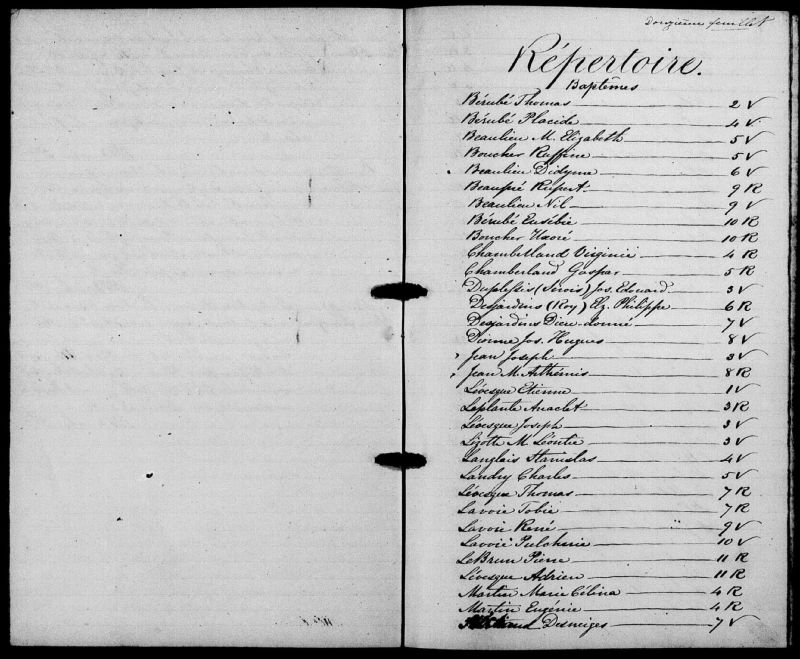 Douzième feuillet
Répertoire.
Baptêmes
Bérubé Thomas 2 V
Bérubé Placide 4 V
Beaulieu M. Elizabeth 5 V
Boucher Ruffine 5 V
Beaulieu Didyme 6 V
Beaupré Rupert 9 R
Beaulieu Nil 9 V
Bérubé Eusébie 10 R
Boucher 10 R
Chamberland Virginie 4 R
Chamberland Gaspar 5 R
Duplessis (Sirois) Jos. Edouard 3 V
Desjardins (Roy) Elz. Philippe 6 R
Desjardins Dieu-donné 7 V
Dionne Jos. Hugues 8 V
Jean Joseph 3 V
Jean M. Arthémis 8 R
Lévesque Etienne 1 V
Laplante Anaclet 3 R
Lévesque Joseph 3 V
Lizotte M. Léontie 3 V
Langlais Stanislas 4 V
Landry Charles 5 V
Lévesque Thomas 7 R
Lavoie Tobie 7 R
Lavoie René 9 V
Lavoie Pulchérie 10 V
LeBrun Pierre 11 R
Lévesque Adrien 11 R
Martin Marie Célina 4 R
Martin Eugénie 4 R
Desneiges 7 V